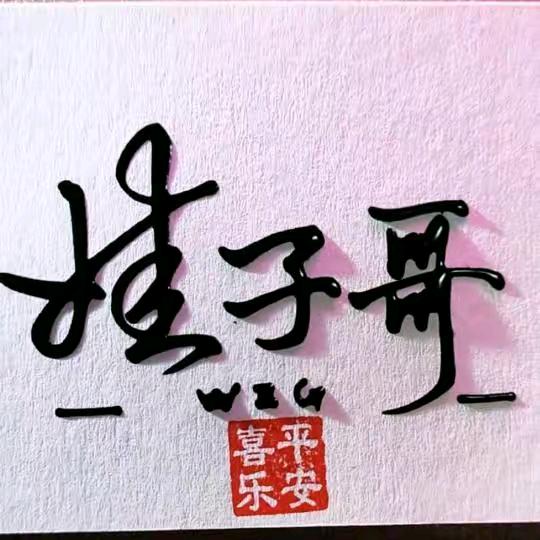 娃子哥
— WZG —
平安
喜乐